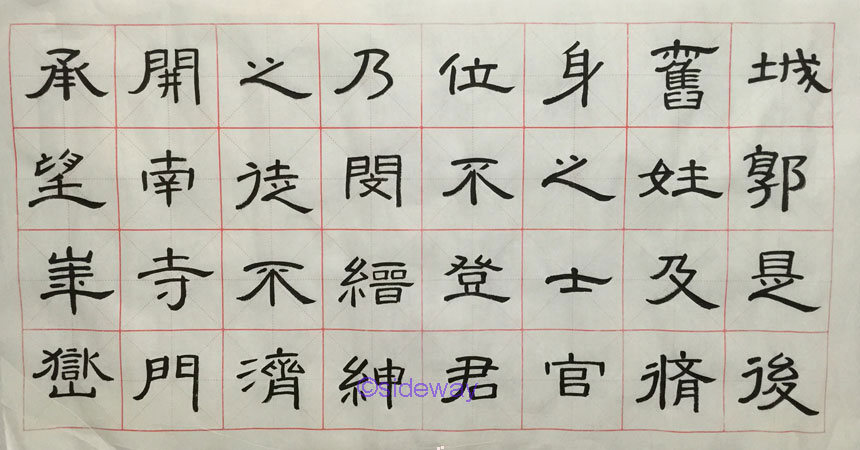 城郭是後
舊姓及脩
身之士官
位不登君
乃閔縉紳
之徒不濟
開南寺門
承望崋嶽
©sideway